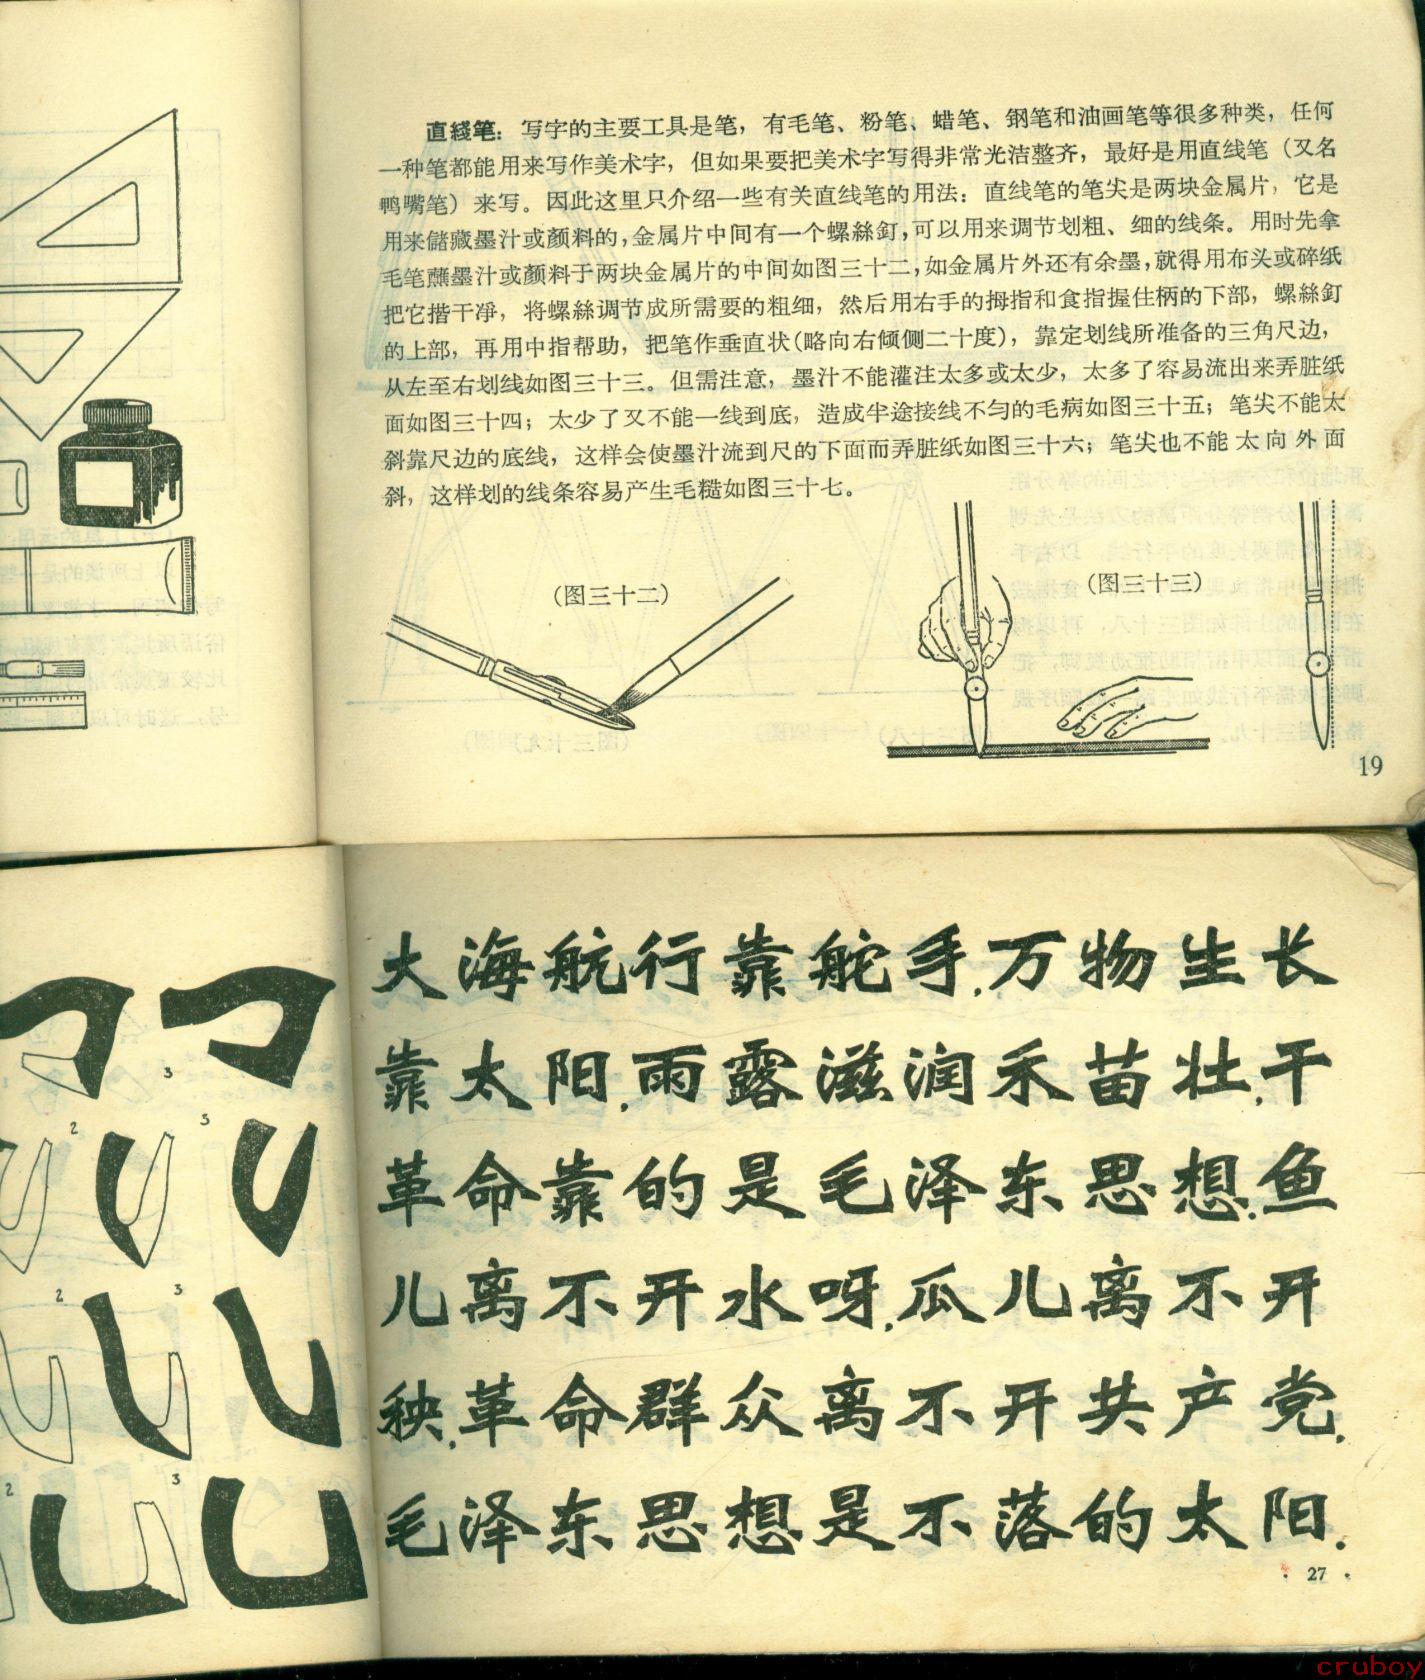 直綫笔：写字的主要工具是笔，有毛笔、粉笔、蜡笔、钢笔和油画笔等很多种类，任何
一种笔都能用来写作美术字，但如果要把美术字写得非常光洁整齐，最好是用直线笔（又名
鸭嘴笔）来写。因此这里只介绍一些有关直线笔的用法：直线笔的笔尖是两块金属片，它是
用来儲藏墨汁或颜料的，金属片中间有一个螺絲釘，可以用来调节划粗、细的线条。用时先拿
毛笔蘸墨汁或颜料于两块金属片的中间如图三十二，如金属片外还有余墨，就得用布头或碎纸
把它揩干凈，将螺絲调节成所需要的粗细，然后用右手的拇指和食指握住柄的下部，螺絲釘
的上部，再用中指帮助，把笔作垂直状（略向右倾侧二十度），靠定划线所准备的三角尺边，
从左至右划线如图三十三。但需注意，墨汁不能灌注太多或太少，太多了容易流出来弄脏纸
面如图三十四；太少了又不能一线到底，造成半途接线不匀的毛病如图三十五；笔尖不能太
斜靠尺边的底线，这样会使墨汁流到尺的下面而弄脏纸如图三十六；笔尖也不能太向外面
斜，这样划的线条容易产生毛糙如图三十七。
（图三十二）
（图三十三）
19
3
2
3
2
3
2
3
大海航行靠舵手.万物生长
靠太阳.雨露滋润禾苗壮.干
革命靠的是毛泽东思想.鱼
儿离不开水呀.瓜儿离不开
秧.革命群众离不开共产党.
毛泽东思想是不落的太阳.
·27·
cruboy